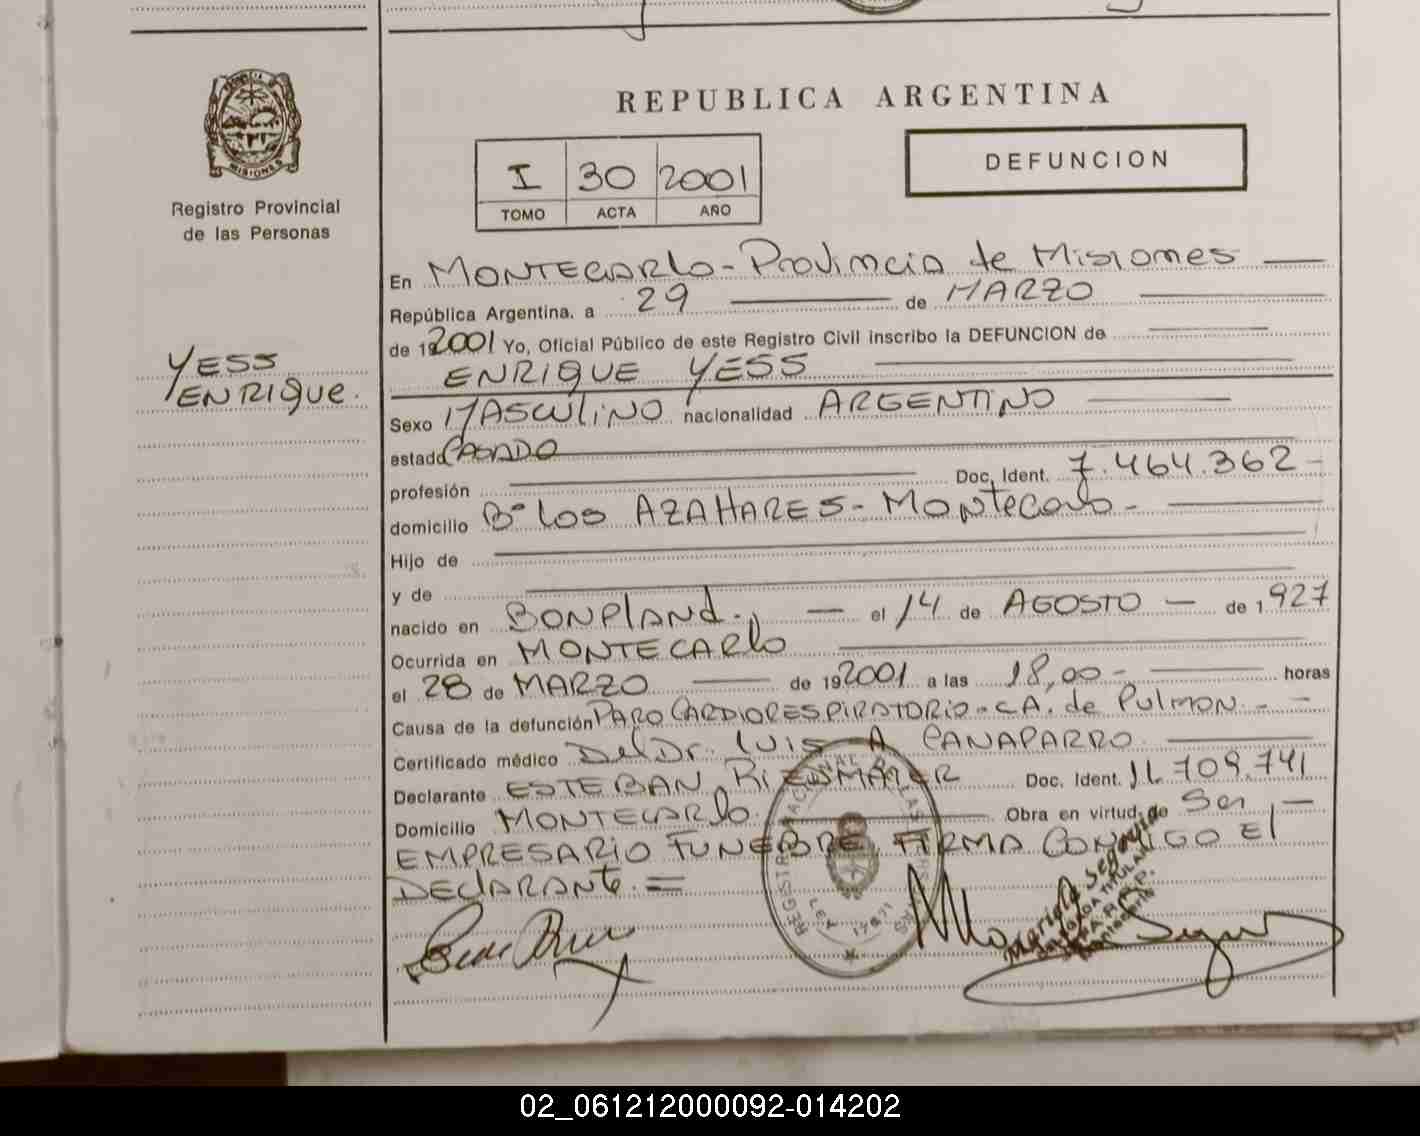 MISIONES
Registro Provincial
de las Personas
YESS
ENRIQUE.
REPUBLICA ARGENTINA
I 30 2001
TOMO ACTA AÑO
DEFUNCION
En MONTECARLO - Provincia de Misiones
República Argentina, a 29 de MARZO
de 192001 Yo, Oficial Público de este Registro Civil inscribo la DEFUNCION de
ENRIQUE YESS
Sexo MASCULINO nacionalidad ARGENTINO
estado CASADO
profesión Doc. Ident. 7.464.362-
domicilio Bº los AZAHARES - Montecarlo -
Hijo de
y de
nacido en BONPLAND., el 14 de AGOSTO - de 1.927
Ocurrida en MONTECARLO
el 28 de MARZO de 192001 a las 18,00 - horas
Causa de la defunción PARO CARDIORESPIRATORIO - CA. de PULMON. -
Certificado médico Del Dr. LUIS A CANAPARRO
Declarante ESTEBAN Doc. Ident. 11.709.741
Domicilio MONTECARLO Obra en virtud de Ser
EMPRESARIO FUNEBRE FIRMA CONMIGO El
DECLARANTE. =
02_061212000092-014202